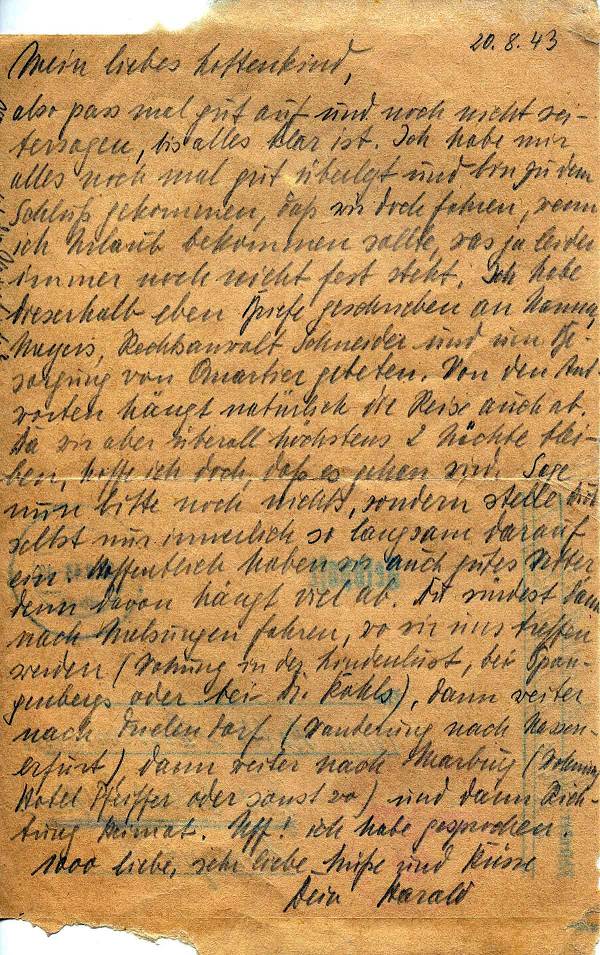 20. 8. 43
Mein liebes Lottenkind,
also pass mal gut auf und noch nicht wei-
tersagen, bis alles klar ist. Ich habe mir
alles noch mal gut überlegt und bin zu dem
Schluß gekommen, daß wir doch fahren, wenn
ich Urlaub bekommen sollte, was ja leider
immer noch nicht fest steht. Ich habe
dieserhalb eben Briefe geschrieben an Hanna,
Meyers, Rechtsanwalt Schneider und um Be-
sorgung von Quartier gebeten. Von den Ant-
worten hängt natürlich die Reise auch ab.
Da wir aber überall höchstens 2 Nächte blei-
ben, hoffe ich doch, daß es gehen wird. Sage
nun bitte noch nichts, sondern stelle Dich
selbst nur innerlich so langsam darauf
ein. Hoffentlich haben wir auch gutes Wetter
denn davon hängt viel ab. Du würdest dann
nach Melsungen fahren, wo wir uns treffen
werden (Wohnung in der Lindenlust, bei Span-
genbergs oder bei Dr. Kohls), dann weiter
nach (Wanderung nach Nassen-
erfurt), dann weiter nach Marburg (Wohnung
Hotel Pfeiffer oder sonst wo) und dann Rich-
tung Heimat. Uff! ich habe gesprochen.
1000 liebe, sehr liebe Grüße und Küsse
Dein Harald